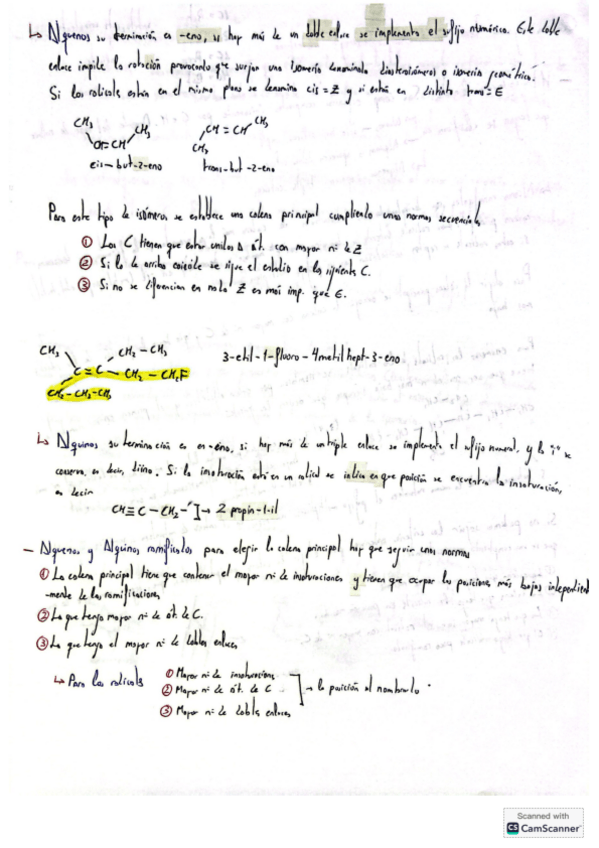 ↳ Alquenos su terminación es -eno, si hay más de un doble enlace se implementa el sufijo numérico. Este doble
enlace impide la rotación provocando que surjan una isomería denominada diasteroisómeros o isomería geométrica.
Si los radicals están en el mismo plano se denomina cis = Z y si están en distinto trans = E
CH3 CH3 CH3
CH=CH CH=CH
CH3
cis-but-2-eno trans-but-2-eno
Para este tipo de isómeros se establece una cadena principal cumpliendo unas normas secuencials
① Los C tienen que estar unidos a át. con mayor nº de Z
② Si lo de arriba coincide se sigue el estudio en los siguientes C.
③ Si no se diferencian en nada Z es más imp. que E.
CH3 CH2-CH3
C=C-CH2-CH2F
CH2-CH2-CH3
3-etil-1-fluoro-4metil hept-3-eno
↳ Alquinos su terminación es en -ino, si hay más de un triple enlace se implementa el sufijo numeral, y la "i" se
conserva, es decir, diino. Si la insaturación está en un radical se indica en que posición se encuentra la insaturación,
es decir
CH≡C-CH2- ] → 2 propin-1-il
- Alquenos y Alquinos ramificados para elegir la cadena principal hay que seguir unas normas
① La cadena principal tiene que contener el mayor nº de insaturaciones y tienen que ocupar las posiciones más bajas independiente
-mente de las ramificaciones
② La que tenga mayor nº de át. de C.
③ La que tenga el mayor nº de dobles enlaces
↳ Para los radicals
① Mayor nº de insaturacions
② Mayor nº de át. de C
③ Mayor nº de dobles enlaces
] → la posición al nombrarlo
Scanned with
CS CamScanner